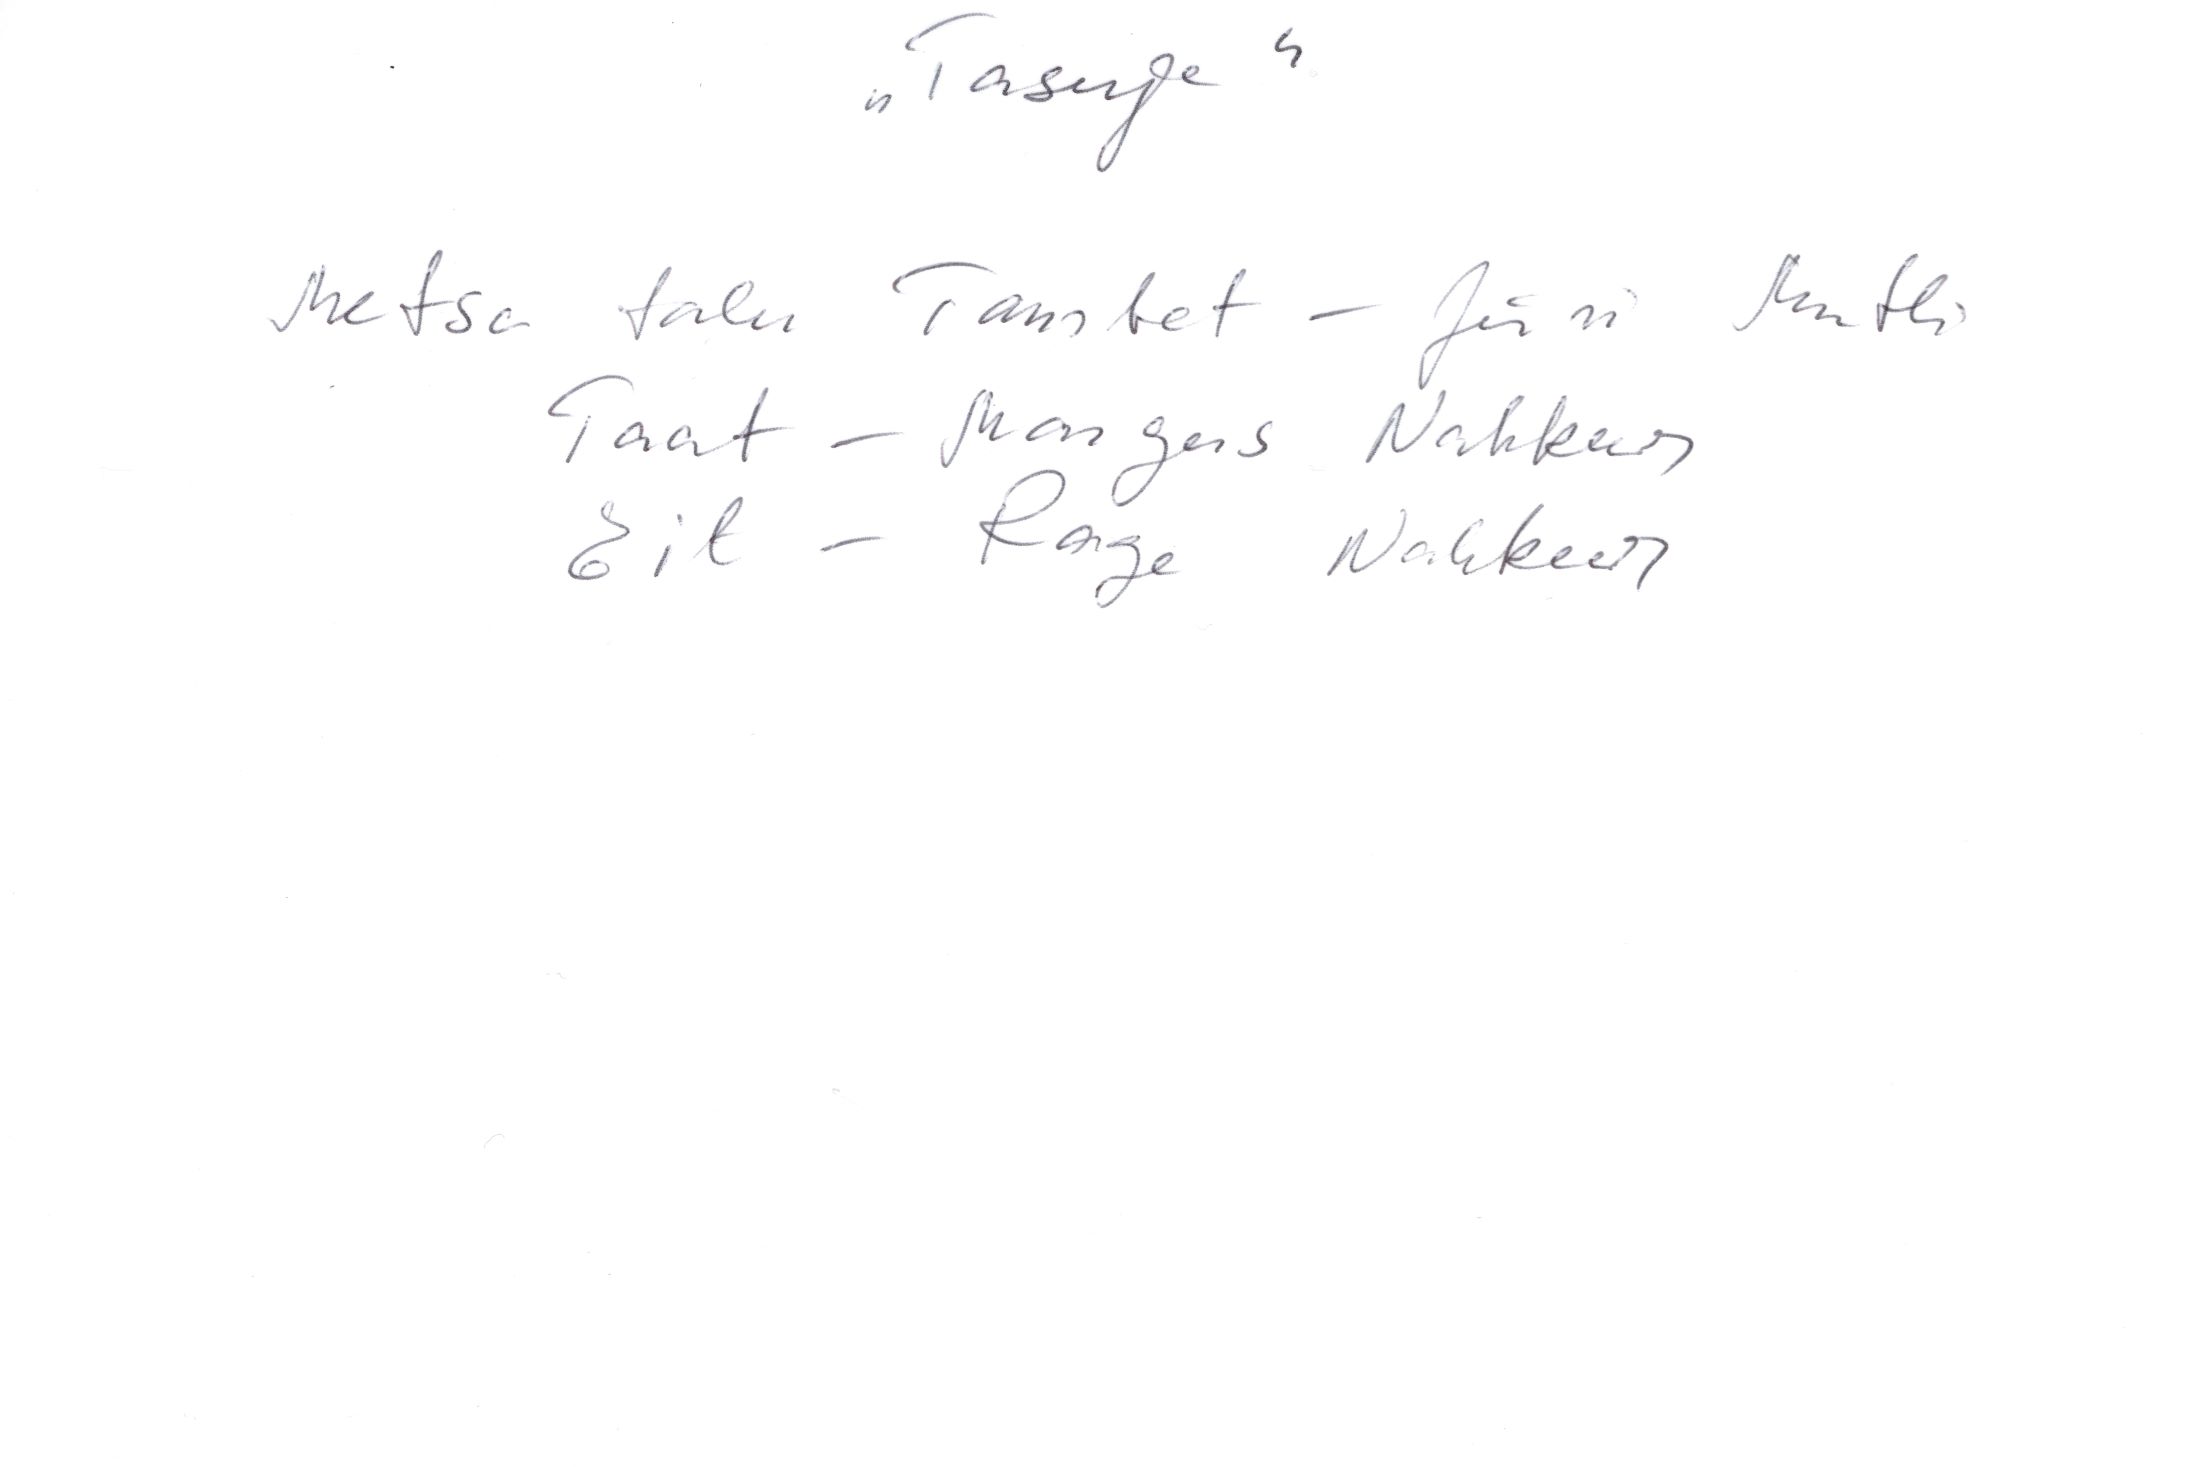 „Tasuja“
Metsa talu Tambet – Jüri Mutli
Taat – Margus Nahkur
Eit – Rage Nahkur